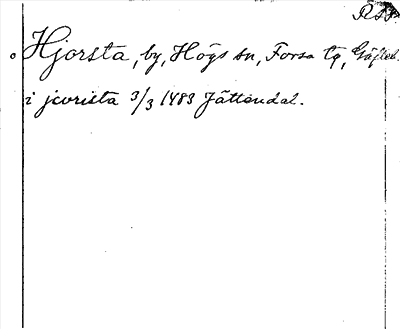 Hjorsta, by, Högs sn, Forsa tg, Gäfleb.
i jcorista 3/3 1483 Jättendal.